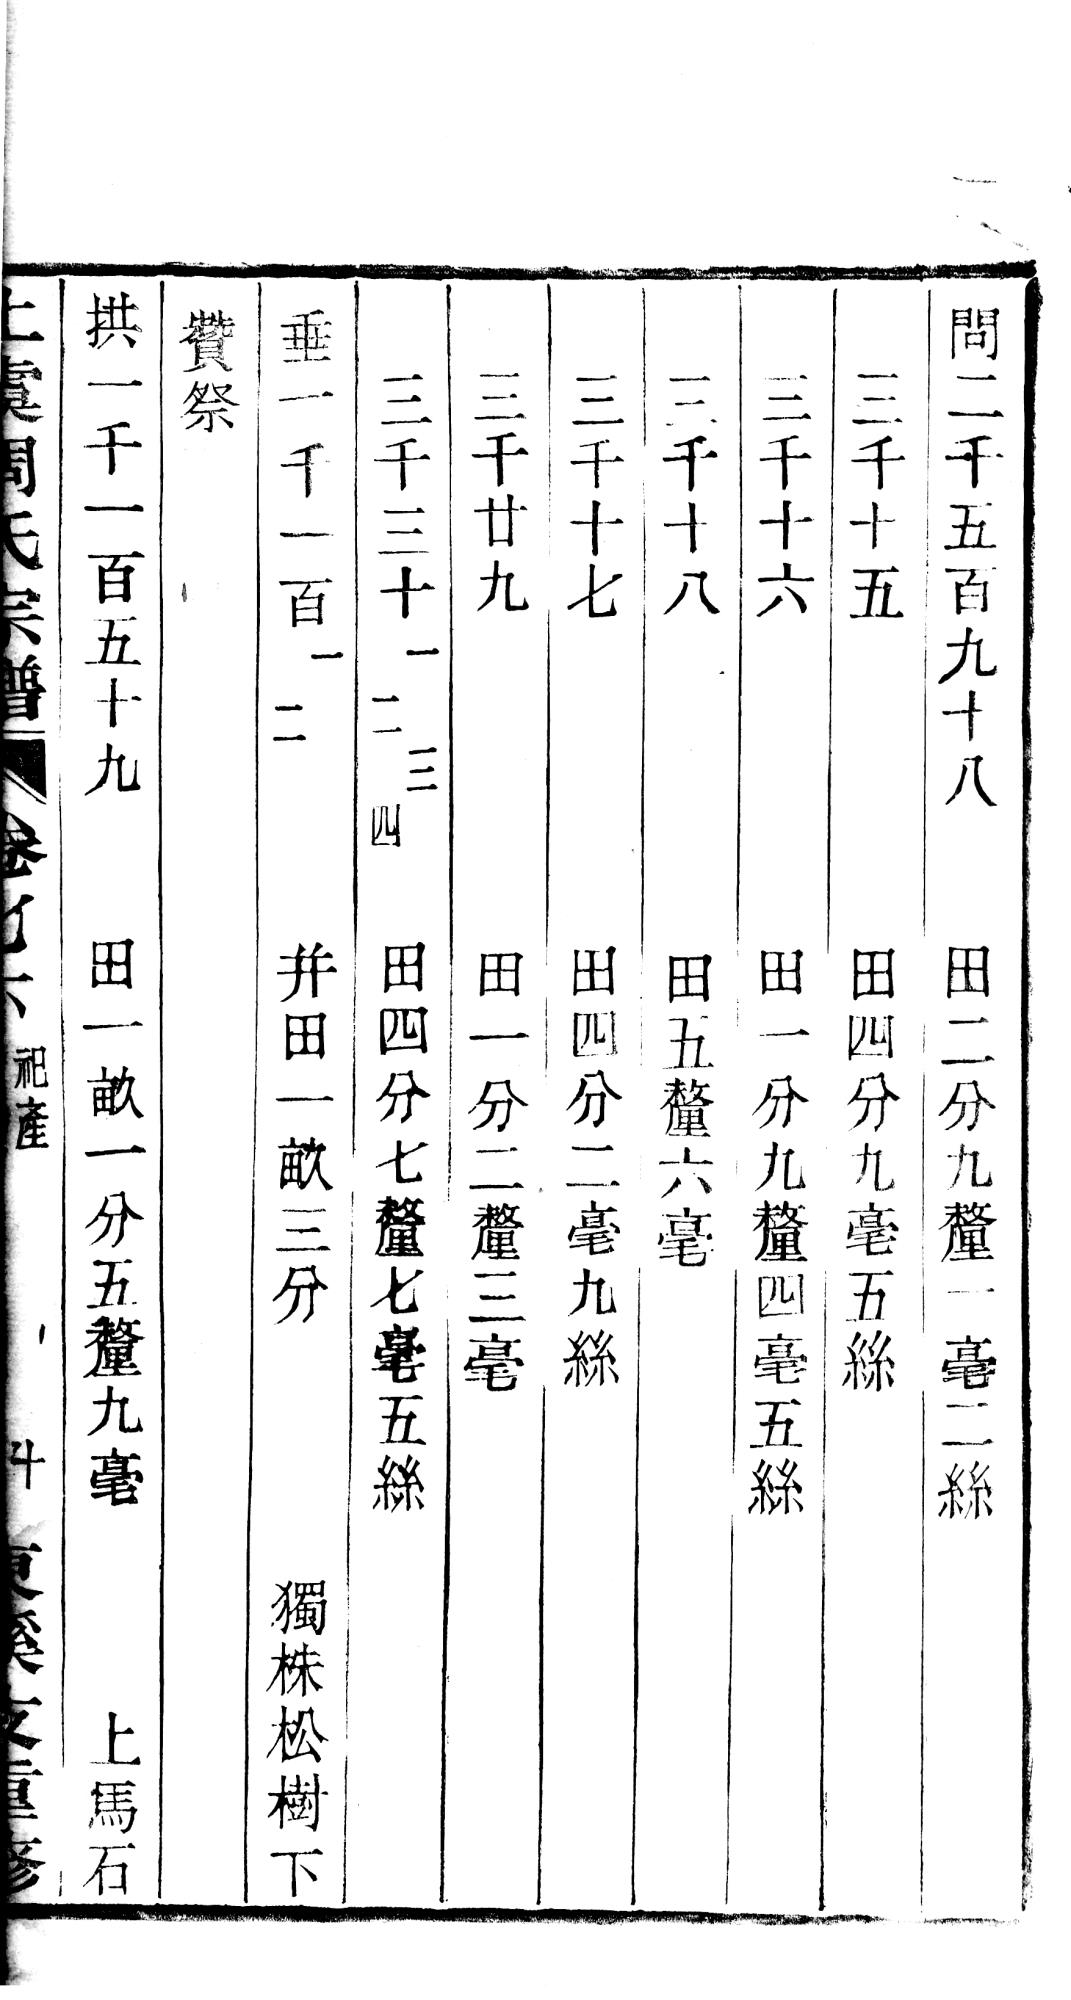 問二千五百九十八　田二分九釐一毫二絲
三千十五　田四分九毫五絲
三千十六　田一分九釐四毫五絲
三千十八　田五釐六毫
三千十七　田四分二毫九絲
三千廿九　田一分二釐三毫
三千三十一二三四　田四分七釐七毫五絲
垂一千一百一二　幷田一畝三分　獨株松樹下
贊祭
拱一千一百五十九　田一畝一分五釐九毫　上馬石
上虞周氏宗譜　卷　六　祀產　東溪支重修